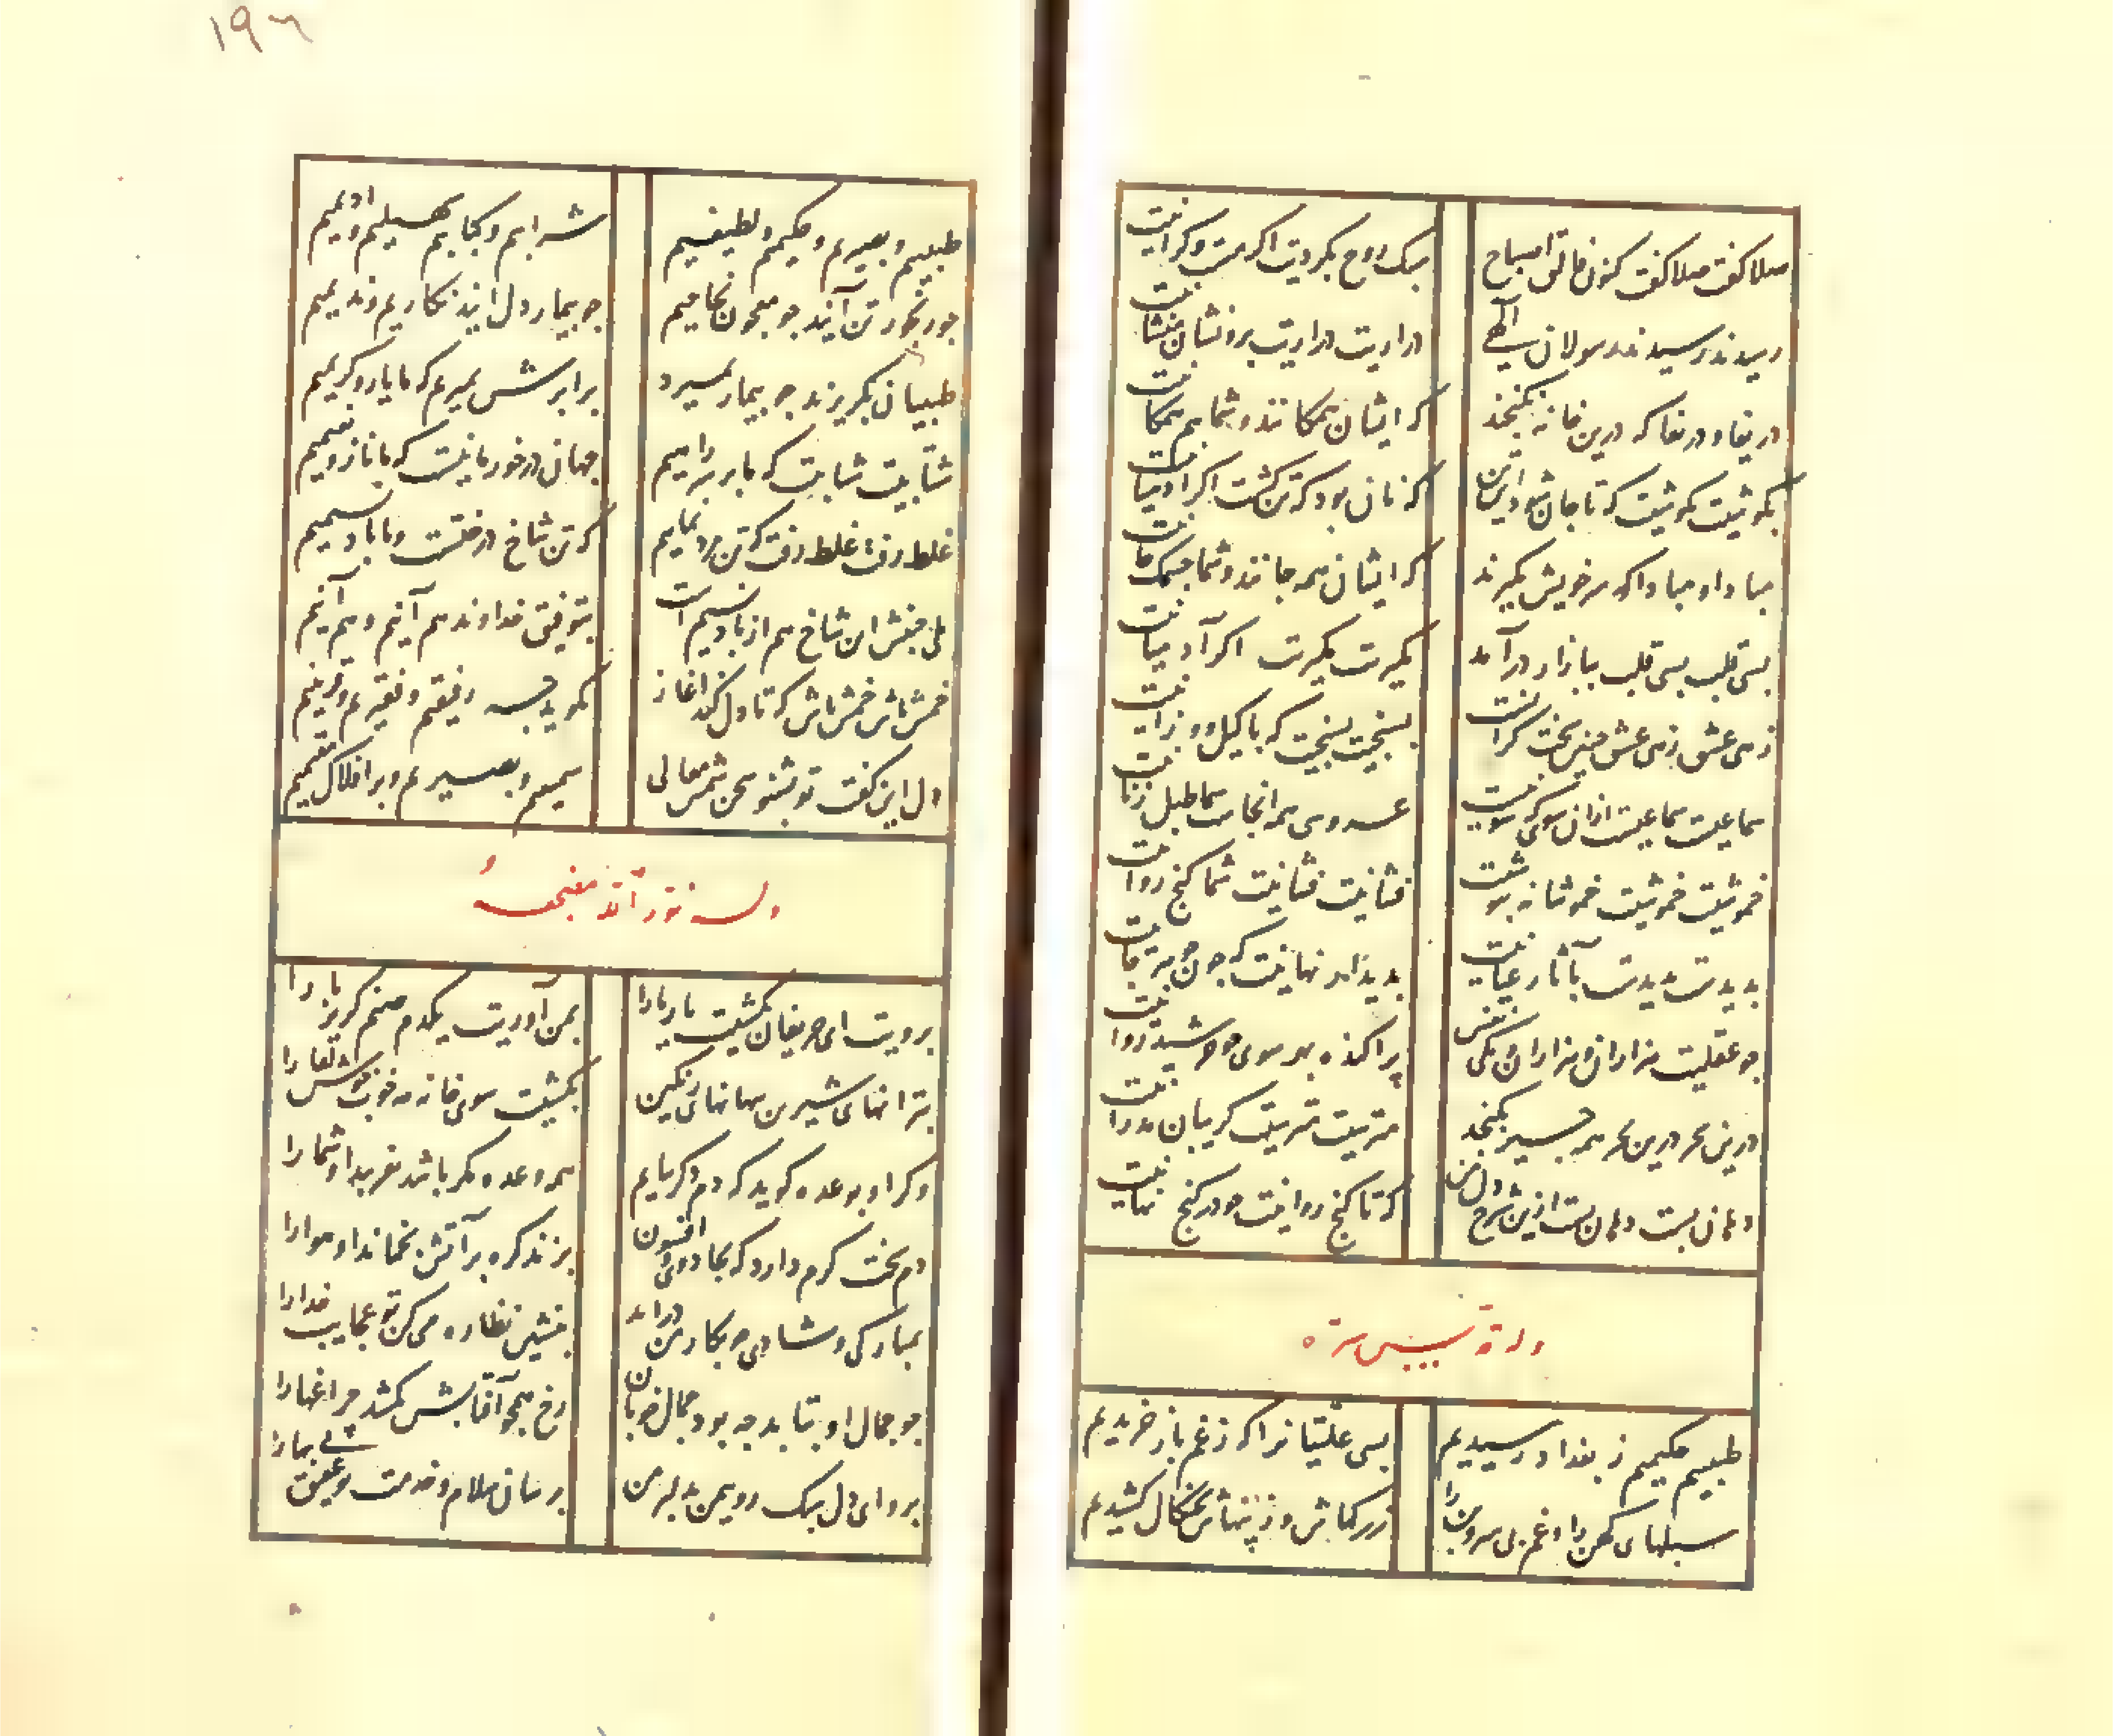 صلا گفت صلا گفت کنون فالق اصباح
سبک روح بگردیت اگر مست و گرانیت
رسیدند رسیدند رسولان الهی
درآریت درآریت برونشان منشانیت
دریغا و دریغا که درین خانه نگنجند
که ایشان همه کانند و شما بند مکانیت
بکوشیت بکوشیت که تا جان شود این تن
که نان بود که تن گشت اگر آدمیانیت
مبادا و مبادا که سر خویش بگیرند
که ایشان همه جانند و شما
بسی قلب بسی قلب ببازار درآمد
بگیریت بگیریت اگر آدمیانیت
زهی عشق زهی عشق چنین سخت کمانیت
بسنجیت بسنجیت که با کیل و وزانیت
سماعیست سماعیست از آن سوی که سو نیست
عروسی همه آنجاست شما طبل زنانیت
خموشیت خموشیت خموشانه بنوشیت
فشانیت فشانیت شما گنج روانیت
بدیدیت بدیدیت بآثار عیانیت
بدید آمد نهانیت که چون جوهر جانیت
چو عقلیت هزاران و هزاران و یکی نفس
پراکنده بهر سوی چو خورشید روانیت
درین بحر درین بحر همه چیز بگنجد
مترسیت مترسیت گریبان مدرانیت
دهان بست دهان بست ازین شرح دل من
که تا گنج روانیت چو در کنج نهانیت
وله قدس سره
طبیبیم حکیمیم ز بغداد رسیدیم
بسی علتیانرا که ز غم باز خریدیم
سبلهای کهن را و غم بی سر و بن را
زرگهاش و ز پیهاش بچنگال کشیدیم
۱۹۲
طبیبیم و بصیریم و حکیمیم و لطیفیم
شرابیم و کبابیم و سهیلیم و ادیمیم
چو رنجور تن آیند چو معجون نجاحیم
چو بیمار دل آیند نگاریم و ندیمیم
طبیبان بگریزند چو بیمار بمیرد
برابرش بمیریم که ما یار و کریمیم
شتابیت شتابیت که ما بر سر راهیم
جهان درخور ما نیست که ما ناز و نعیمیم
غلط رفت غلط رفت که تن مرد نماییم
که تن شاخ درختست و ما باد نسیمیم
ولی جنبش این شاخ هم از باد نسیم است
بتوفیق خداوند هم آنیم و هم اینیم
خمش باش خمش باش که تا دل کند آغاز
بگوید چه رفیقیم و فقیریم و قرینیم
دل این گفت تو بشنو سخن شمس معالی
سمیعیم و بصیریم و بر افلاک مقیمیم
وله نور الله مضجعه
برویت ای حریفان بکشیت یار ما را
بمن آوریت یکدم صنم گریزپا را
بترانهای شیرین ببهانهای رنگین
بکشیت سوی خانه مه خوب خوش لقا را
وگر او بوعده گوید که دم دگر بیایم
همه وعده مکر باشد بفریبد او شما را
دم سخت گرم دارد که بجادوی و افسون
بزند گره بر آتش بجهاند او هوا را
بمبارکی و شادی چو نگار من درآید
بنشین نظاره می کن تو عجایب خدا را
چو جمال او بتابد چه بود جمال خوبان
رخ همچو آفتابش بکشد چراغها را
برو ای دل سبک رو بیمن بدلبر من
برسان سلام و خدمت تو عقیق بی بها را